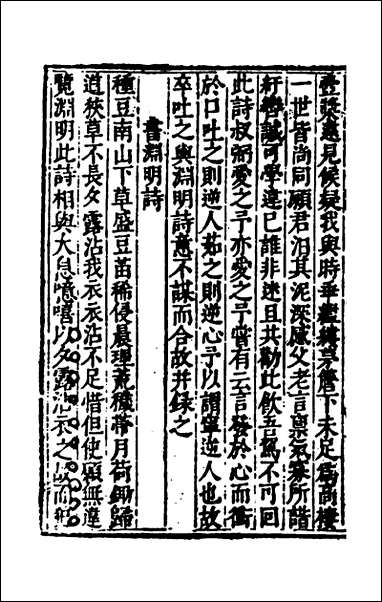 壺漿遠見候疑我與時乖繿縷茅簷下未足爲高棲
一世皆尚同願君汨其泥深感父老言稟氣寡所諧
紆轡誠可學違已詎非迷且共歡此飲吾駕不可回
此詩叔弼愛之予亦愛之予嘗有云言發於心而衝
於口吐之則逆人茹之則逆心予以謂寧逆人也故
卒吐之與淵明詩意不謀而合故并錄之
書淵明詩
種豆南山下草盛豆苗稀侵晨理荒穢帶月荷鋤歸
道狹草不長夕露沾我衣衣沾不足惜但使願無違
覽淵明此詩相與太息噫嘻以夕露沾衣之故而